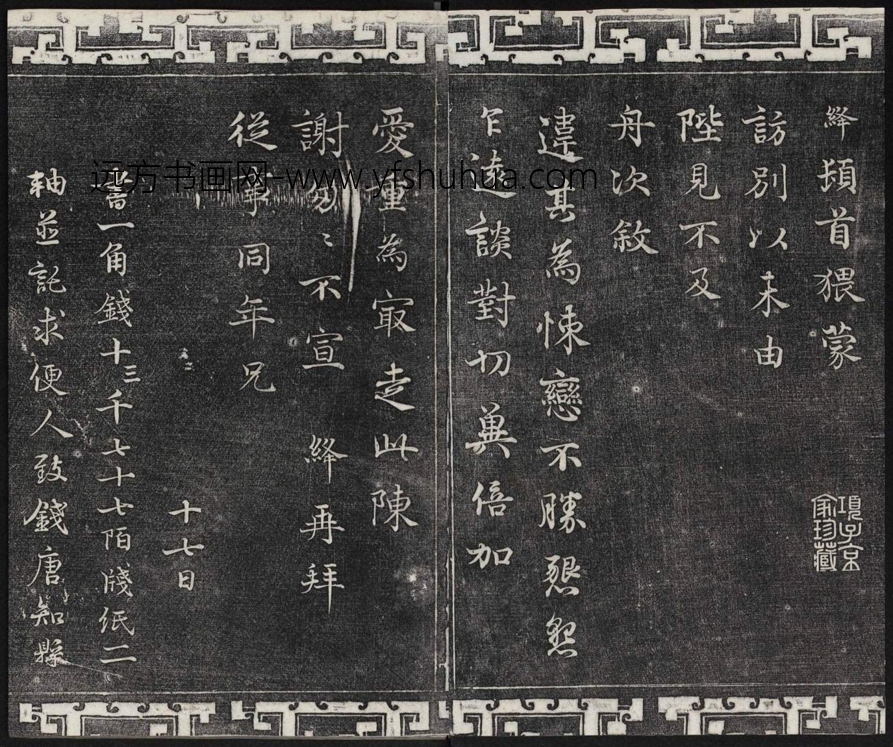 絳頓首猥蒙
訪別以未由
陛見不及
舟次敘
違甚為悚戀不勝懇懇
乍遠談對切冀倍加
愛重為寂走此陳
謝匆〻不宣 絳再拜
從事同年兄
十七日
書一角錢十三千七十七陌牋紙二
軸並託求便人致錢唐知縣
項子京
家珍藏
远方书画网-www.yfshuhua.com